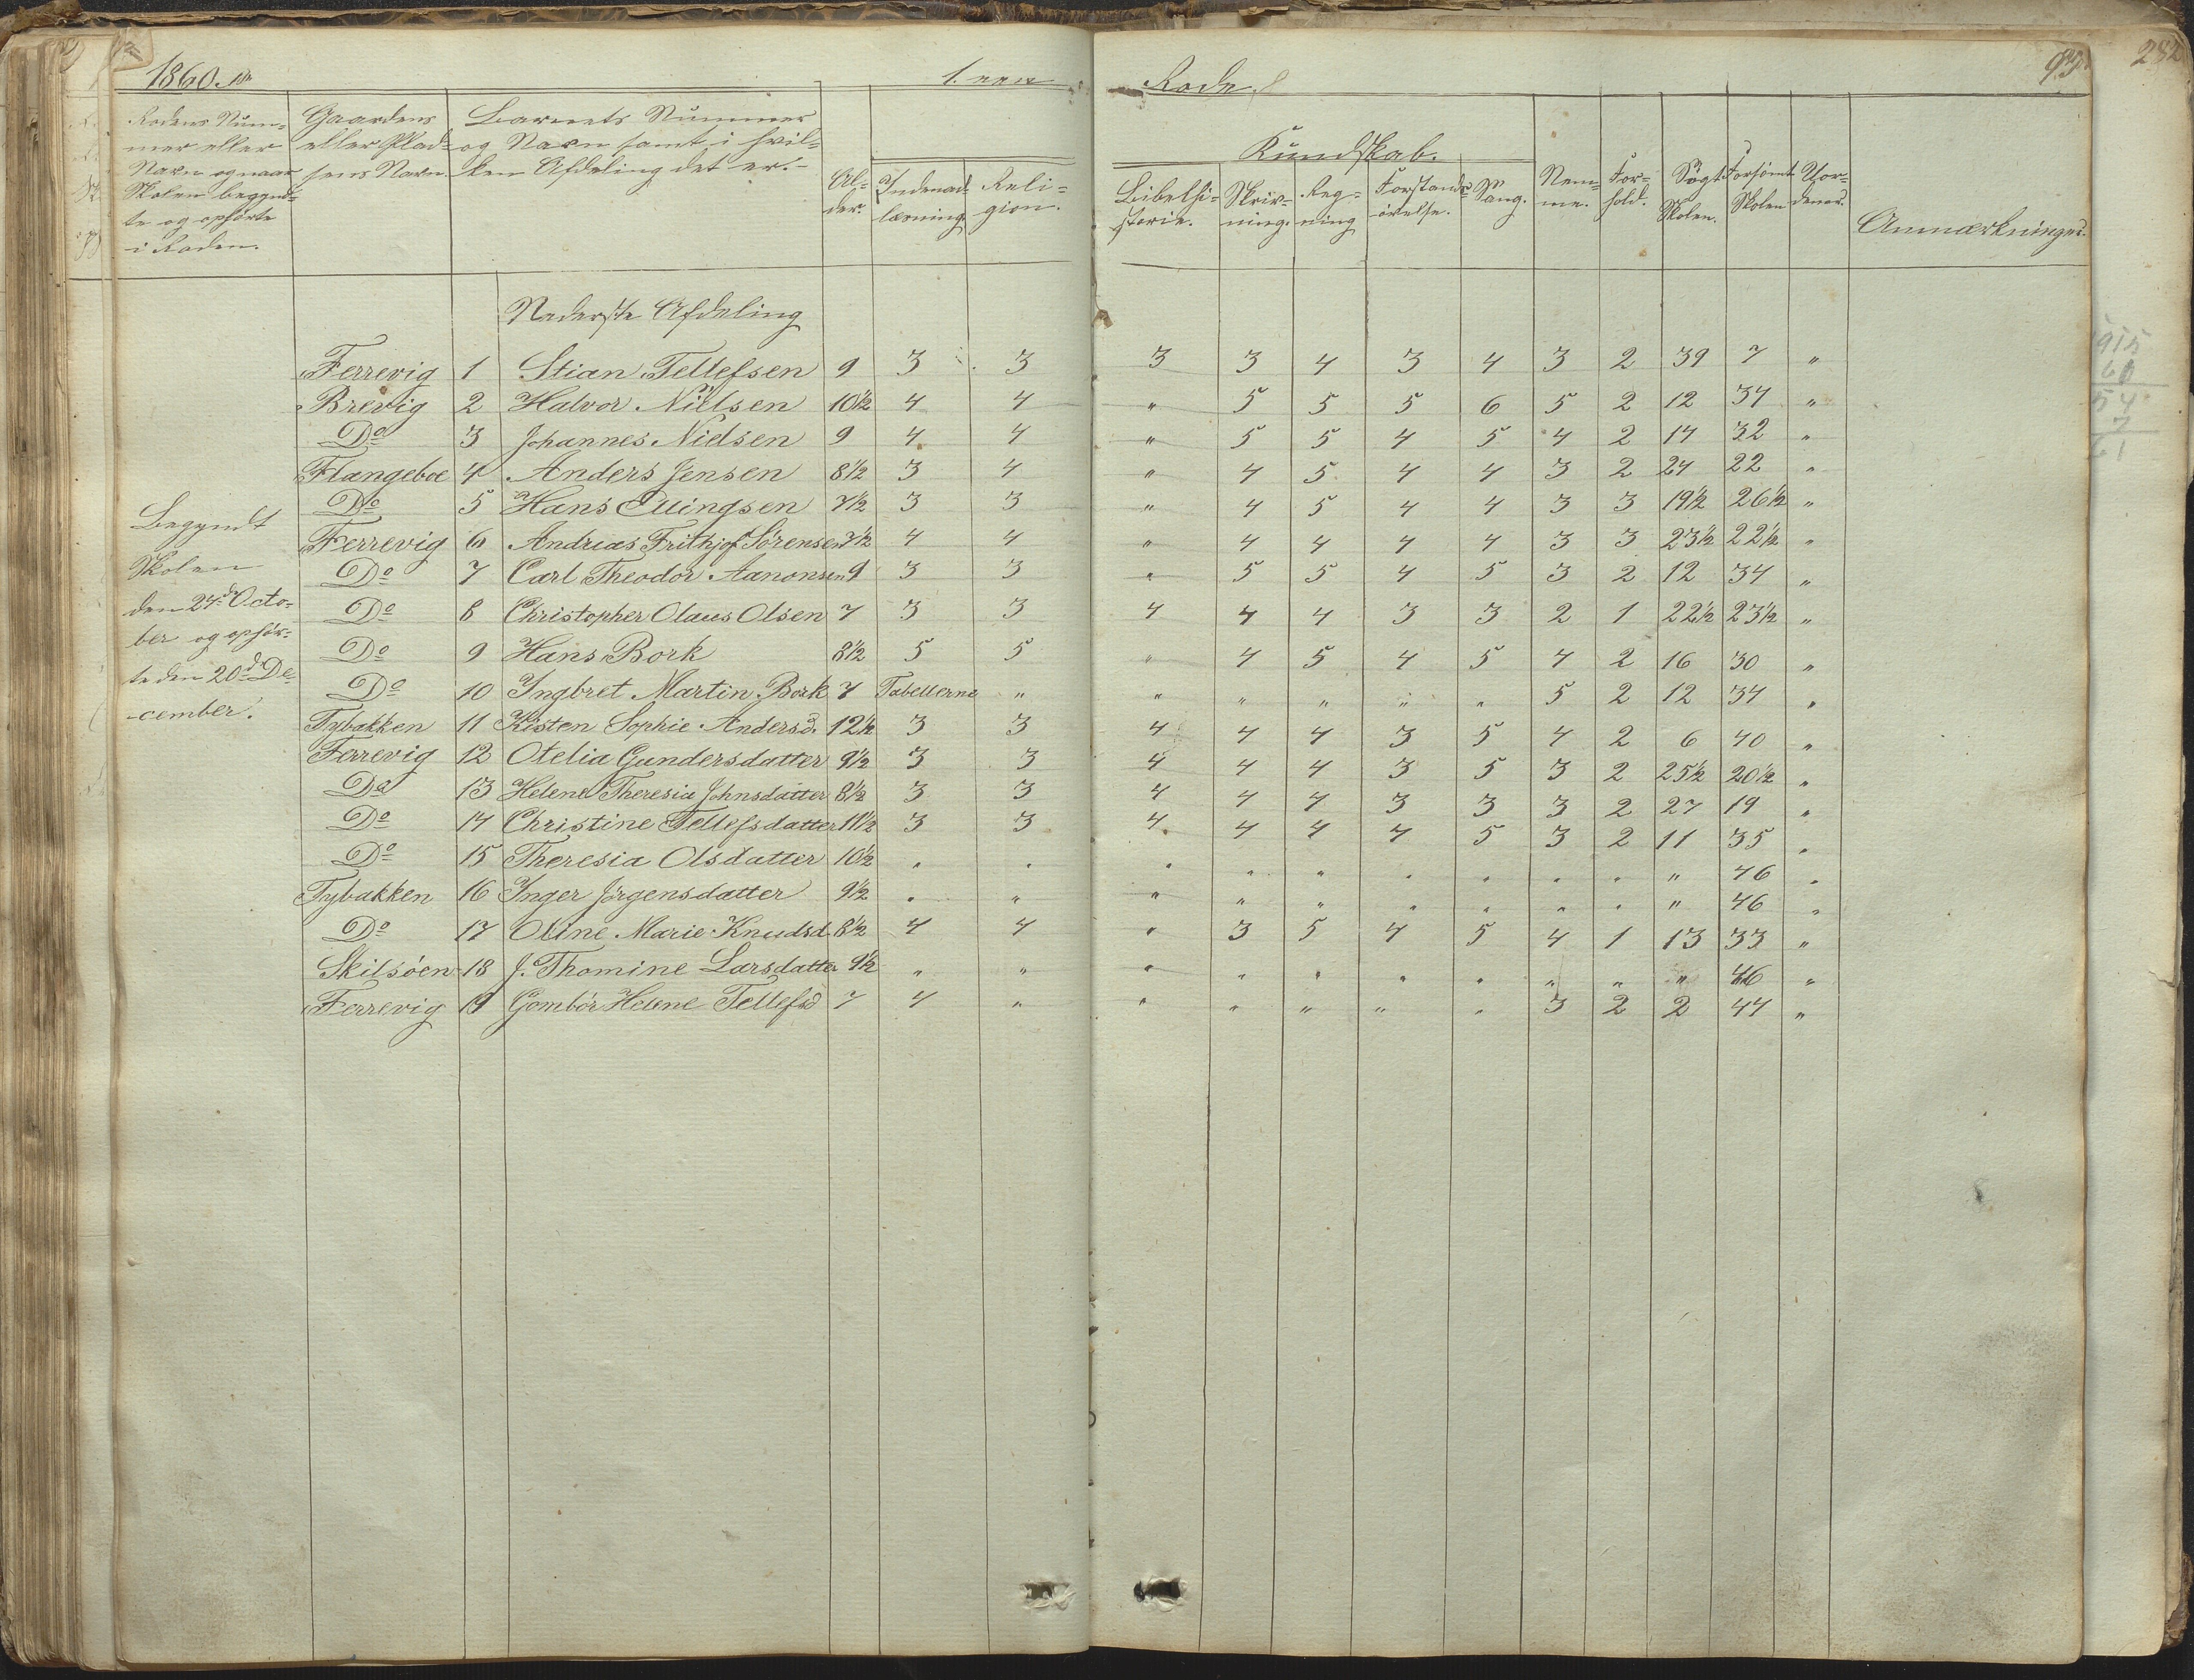 1860. 1. Rode. 93. 282
Rodens Num-
mer eller
Navn og naar
Skolen begynd-
te og ophørte
i Roden.
Gaardens
eller Plad-
sens Navn.
Barnets Nummer
og Navn samt i hvil-
ken Afdeling det er.
Al-
der.
Indenad-
læsning
Reli-
gion.
Kundskab.
Bibelhi-
storie.
Skriv-
ning.
Reg-
ning
Forstands-
øvelse.
Sang.
Nem-
me.
For-
hold.
Søgt
Skolen.
Forsømt
Skolen
Uor-
dener.
Anmærkninger.
Nederste Afdeling
Færrevig 1 Stian Tellefsen 9 3 3 3 3 4 3 4 3 2 39 7 "
Brevig 2 Halvor Nielsen 10½ 4 4 " 5 5 5 6 5 2 12 34 "
Do 3 Johannes Nielsen 9 4 4 " 5 5 4 5 4 2 14 32 "
Flangeboe 4 Anders Jensen 8½ 3 4 " 4 5 4 4 3 2 24 22 "
Do 5 Hans Ellingsen 7½ 3 3 " 4 5 4 4 3 3 19½ 26½ "
Ferrevig 6 Andreas Frithjof Sörensen 7½ 4 4 " 4 4 4 4 3 3 23½ 22½ "
Do 7 Carl Theodor Aanonsen 9 3 3 " 5 5 4 5 3 2 12 34 "
Do 8 Christopher Olaus Olsen 7 3 3 4 4 4 3 3 2 1 22½ 23½ "
Do 9 Hans Bork 8½ 5 5 " 4 5 4 5 4 2 16 30 "
Do 10 Ingbret Martin Bork 7 Tabellerne " " " " " " 5 2 12 34 "
Tybakken 11 Kisten Sophie Andersd. 12½ 3 3 4 4 4 3 5 4 2 6 40 "
Ferrevig 12 Otelia Gundersdatter 9½ 3 3 4 4 4 3 5 3 2 25½ 20½ "
Do 13 Helene Theresia Johnsdatter 8½ 3 3 4 4 4 3 3 3 2 27 19 "
Do 14 Christine Tellefsdatter 11½ 3 3 4 4 4 4 5 3 2 11 35 "
Do 15 Theresia Olsdatter 10½ " " " " " " " " " " 46 "
Tybakken 16 Inger Jörgensdatter 9½ " " " " " " " " " " 46 "
Do 17 Oline Marie Knudsd. 8½ 4 4 " 3 5 4 5 4 1 13 33 "
Skilsöen 18 J. Thomine Larsdatter 9½ " " " " " " " " " " 46 "
Ferrevig 19 Gombör Helene Tellefsd 7 4 " " " " " " 3 2 2 44 "
Begyndt
Skolen
den 24de Octo-
ber og ophör-
te den 20de De-
-cember.